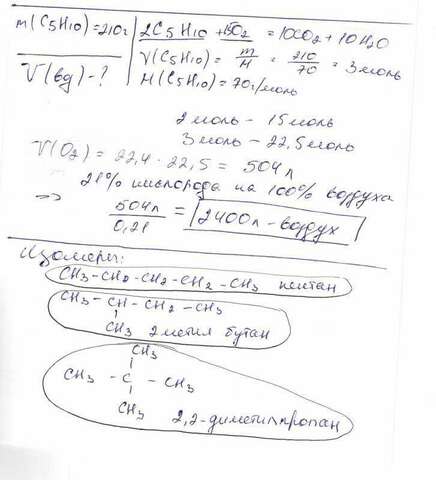 m(C5H10)=210г
V(вд)-?
2C5H10 + 15O2 = 10CO2 + 10H2O
V(C5H10) = m/M = 210/70 = 3 моль
M(C5H10) = 70г/моль
2 моль - 15 моль
3 моль - 22,5 моль
V(O2) = 22,4 · 22,5 = 504 л
21% кислорода на 100% воздуха
=> 504л/0,21 = 2400л - воздух
Изомеры:
CH3-CH2-CH2-CH2-CH3 пентан
CH3-CH-CH2-CH3
CH3 2 метил бутан
CH3
CH3 - C - CH3
CH3
2,2-диметилпропан